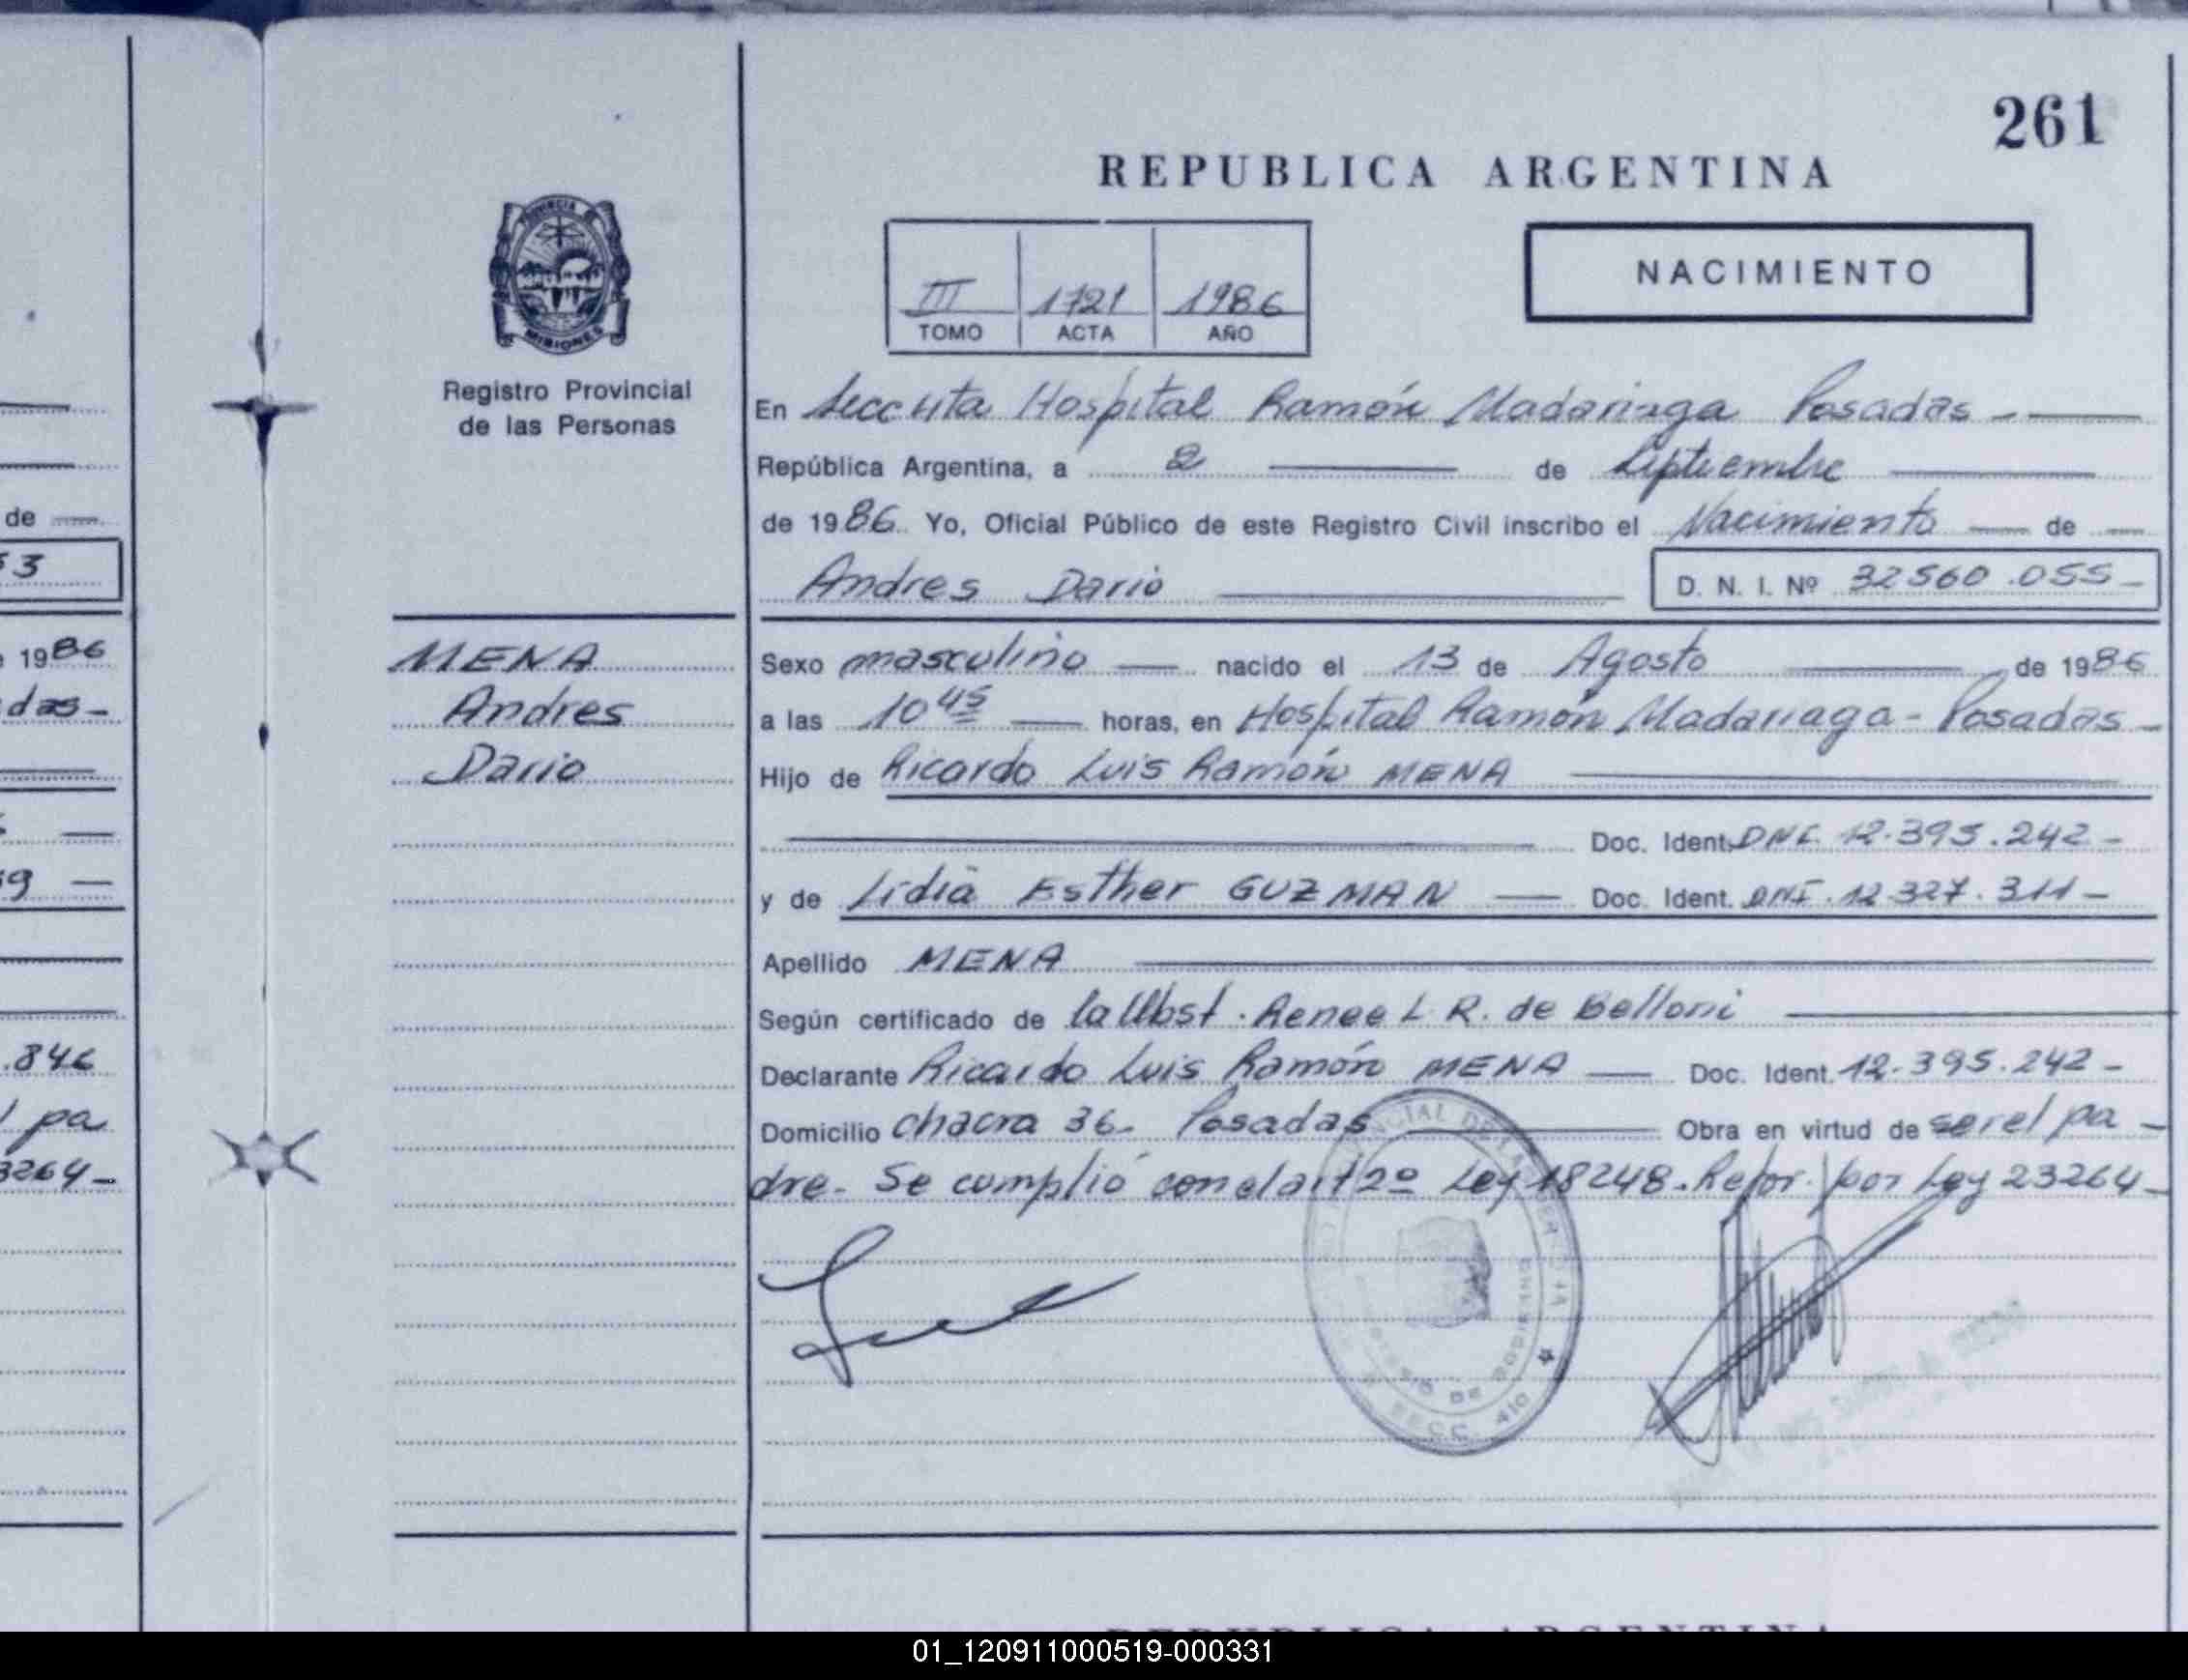 261
REPUBLICA ARGENTINA
NACIMIENTO
III 1721 1986
TOMO ACTA AÑO
PROVINCIA DE
MISIONES
Registro Provincial
de las Personas
En Hospital Ramón Madariaga Posadas
República Argentina, a 2 de Septiembre
de 1986 Yo, Oficial Público de este Registro Civil inscribo el Nacimiento de
Andres Dario D. N. I. Nº 32560.055-
MENA
Andres
Dario
Sexo masculino nacido el 13 de Agosto de 1986
a las 10 45 horas, en Hospital Ramón Madariaga - Posadas -
Hijo de Ricardo Luis Ramón MENA
Doc. Ident. DNI. 12.395.242-
y de Lidia Esther GUZMAN Doc. Ident. DNI. 12.327.311-
Apellido MENA
Según certificado de la Obst. Renee L R. de Belloni
Declarante Ricardo Luis Ramón MENA Doc. Ident. 12.395.242-
Domicilio chacra 36. Posadas Obra en virtud de ser el pa-
dre. Se cumplió con el art 2º Ley 18248. Refor. por Ley 23264-
de
53
1986
das-
.846
pa
3264-
01_120911000519-000331